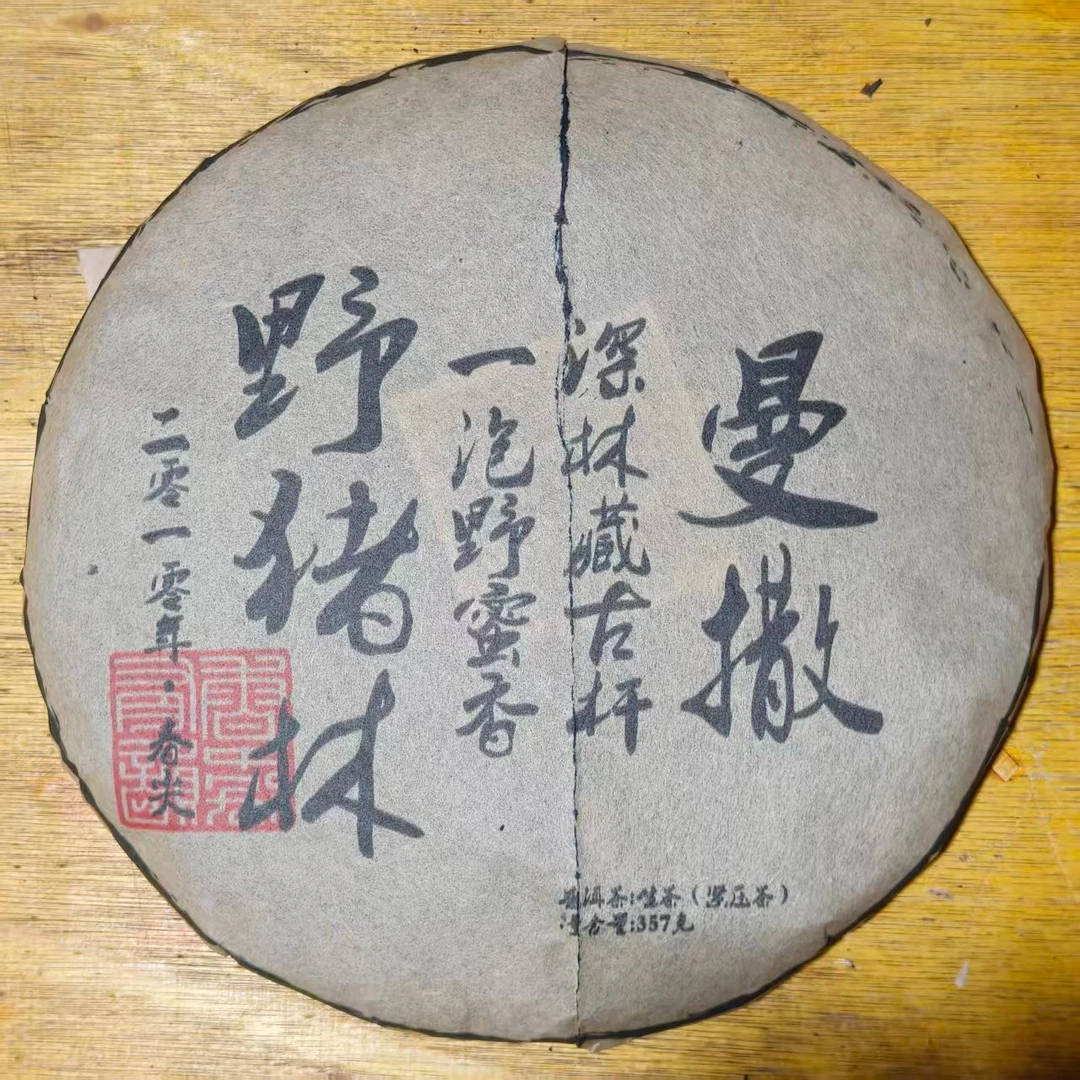 曼撒
深林藏古枰
一泡野蜜香
野猪林
二零一零年·春尖
普洱茶:生茶(紧压茶)
净含量:357克